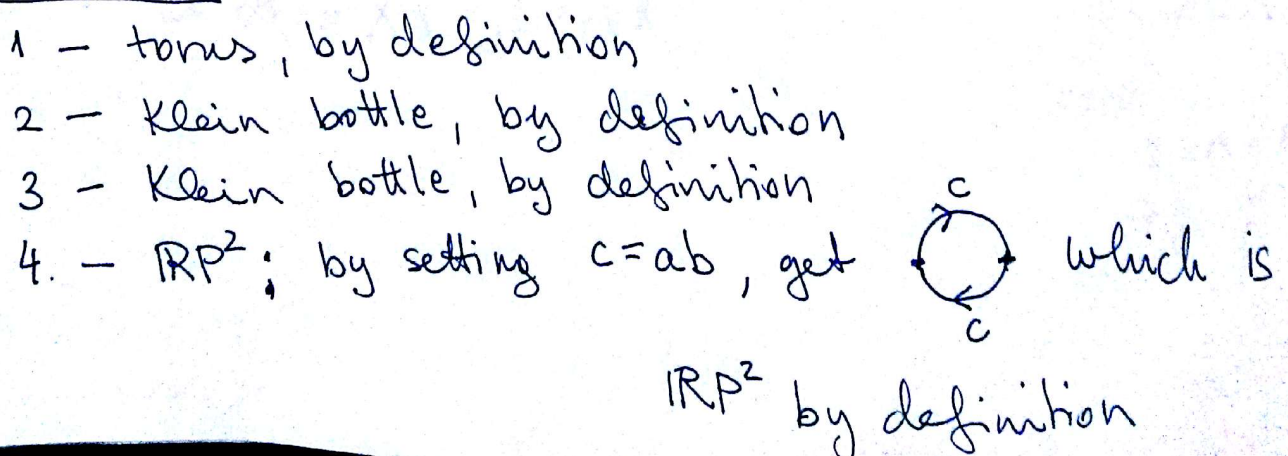 1 - torus, by definition
2 - Klein bottle, by definition
3 - Klein bottle, by definition
c
4. - RP²; by setting c=ab, get which is
c
RP² by definition